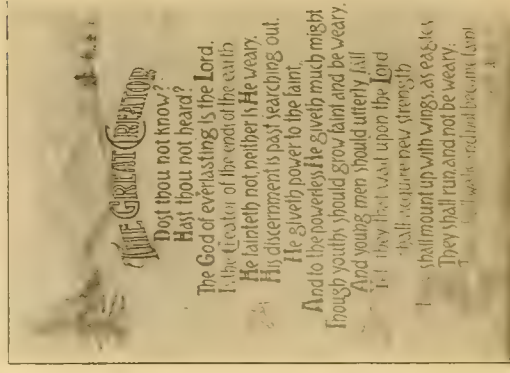 THE GREAT CREATOR
Dost thou not know?
Hast thou not heard?
The God of everlasting is the Lord.
Is the Creator of the ends of the earth
He fainteth not neither is He weary.
His discernment is past searching out.
He giveth power to the faint,
And to the powerless He giveth much might
Though youths should grow faint and be weary.
And young men should utterly fall
they that wait upon the Lord
shall acquire new strength
shall mount up with wings, as eagles
They shall run, and not be weary:
walk and not become faint